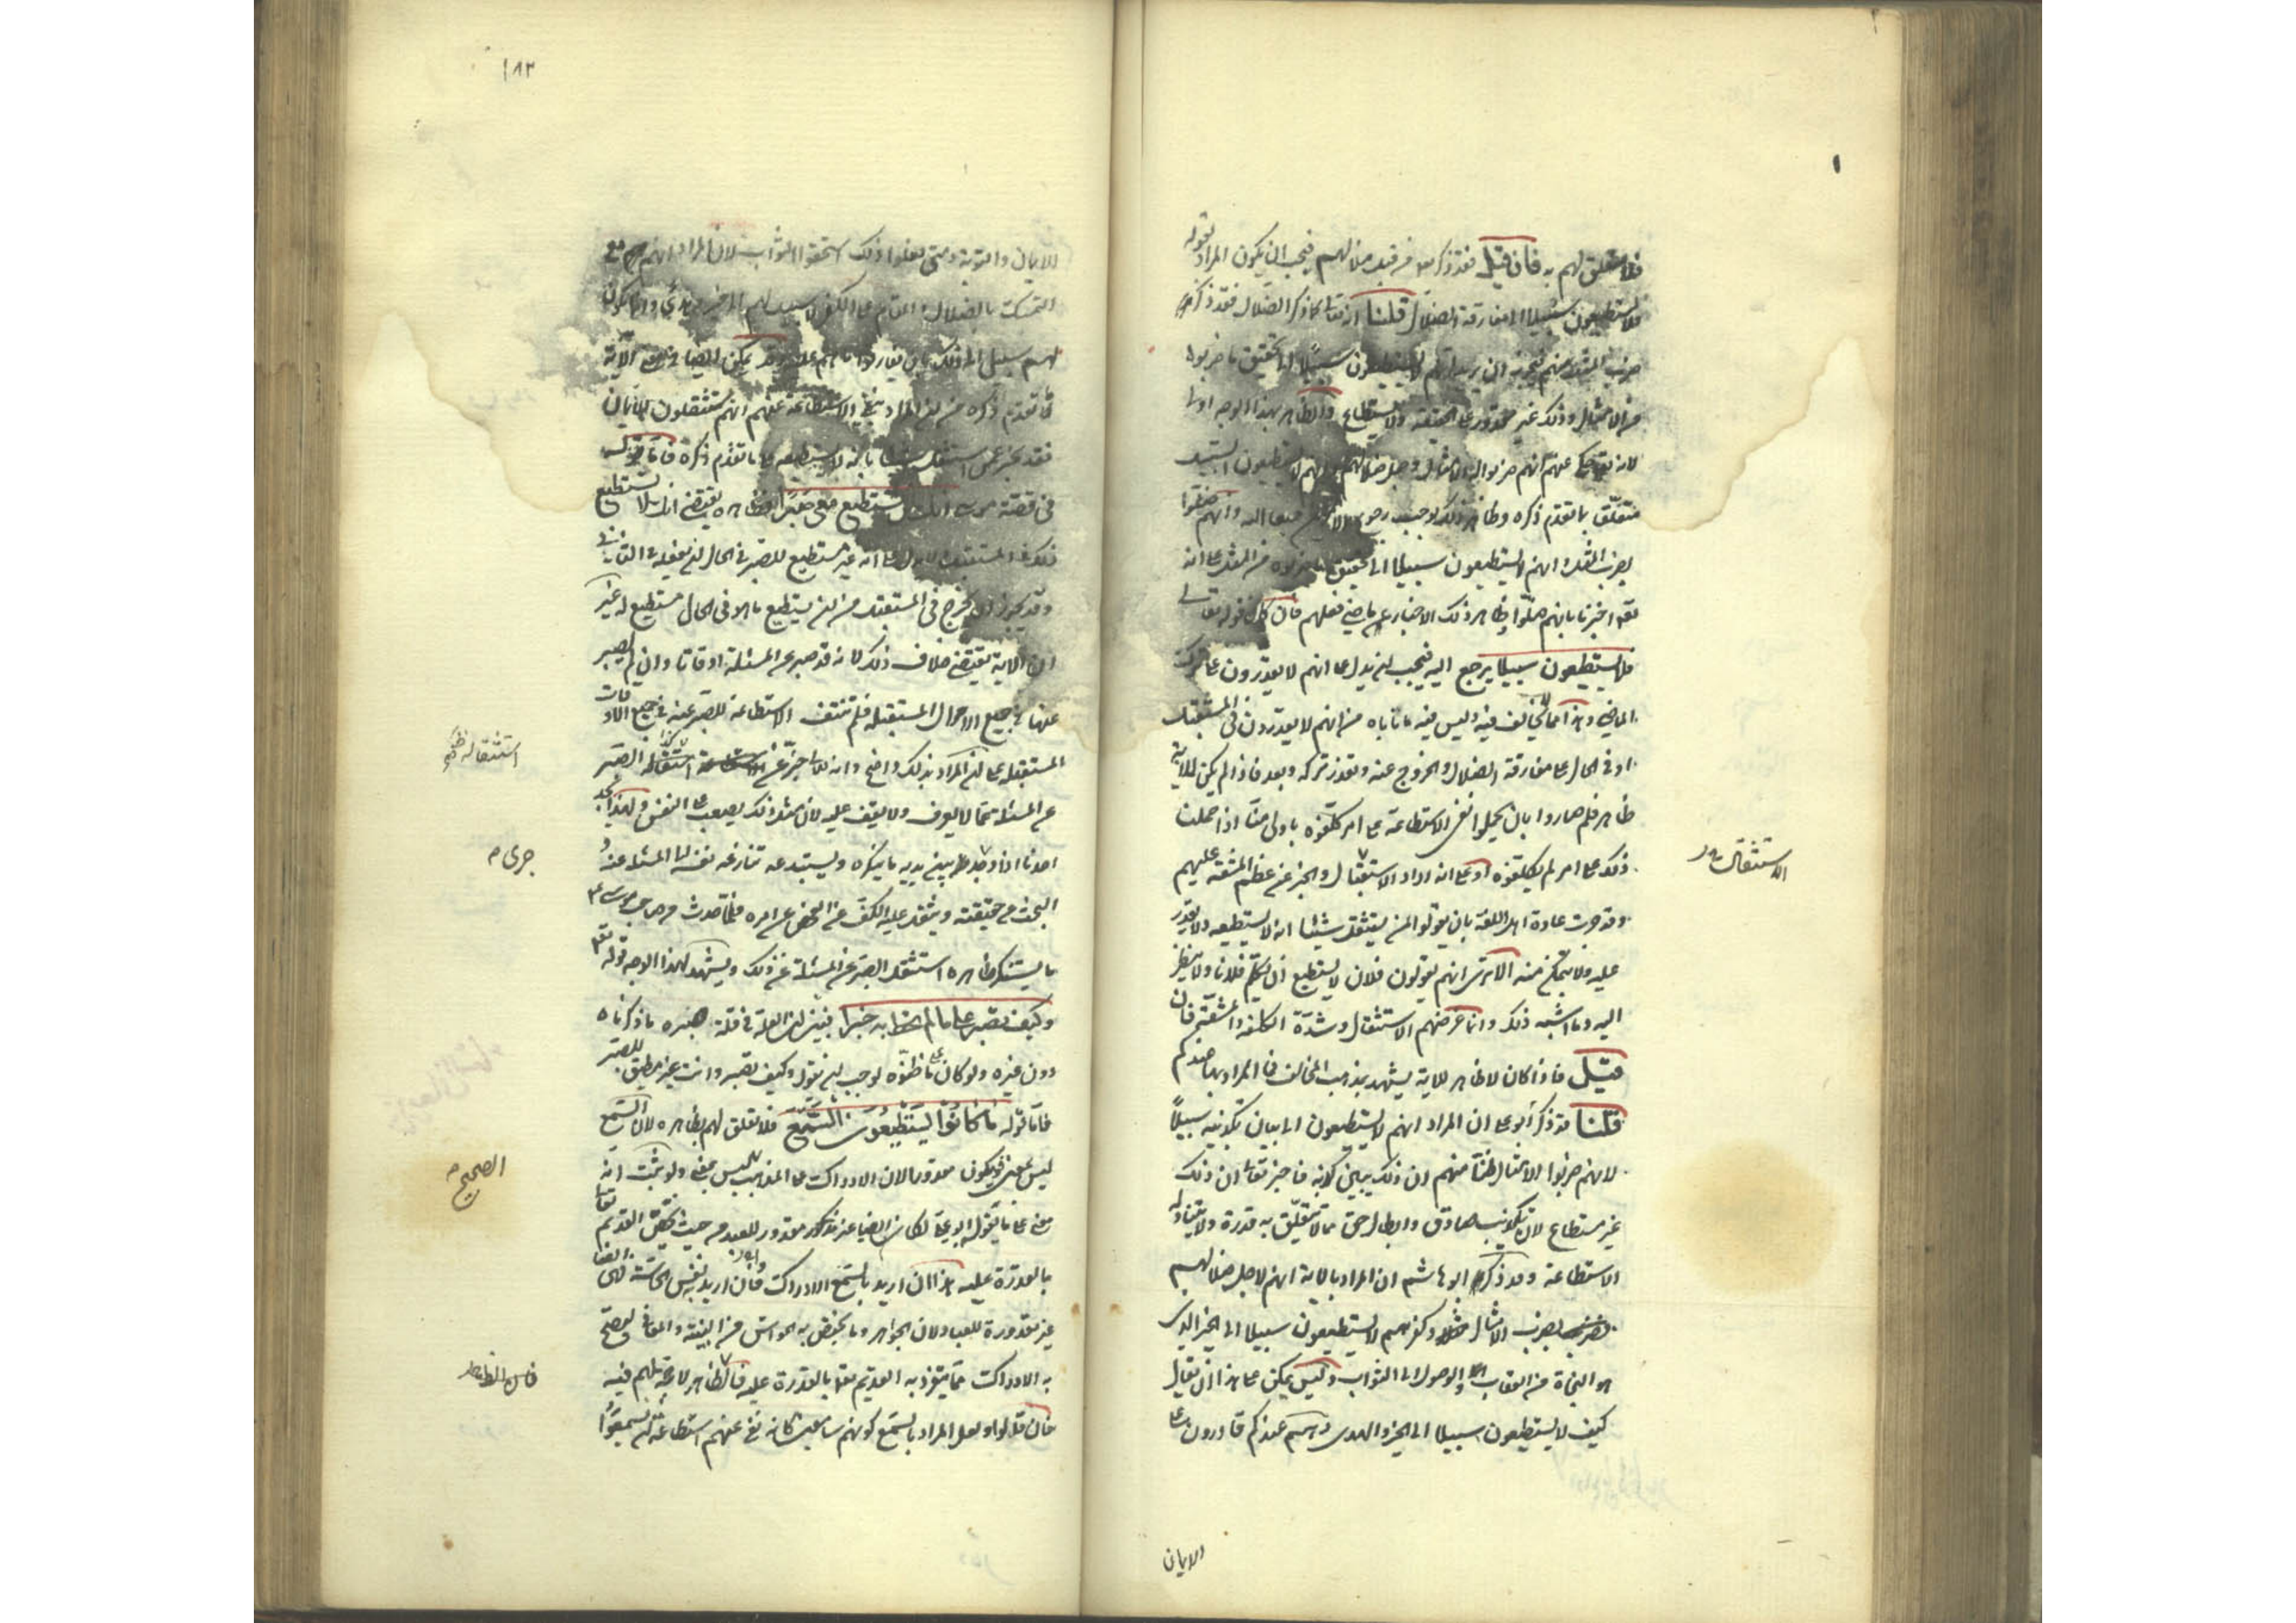 فلا تعلق لهم به فان قيل فقد ذكر من قبل ضلالهم فيجب ان يكون المراد بقوله
فلا يستطيعون سبيلا الى مفارقة الضلال قلنا انه تعالى كما ذكر الضلال فقد ذكر
ضرب المثل منهم فيجوز ان يريد انهم لا يستطيعون سبيلا الى تحقيق ما ضربوا
من الامثال وذلك غير مقدور على الحقيقة ولا يستطاع والظاهر بهذا الوجه اولى
لانه تعالى حكى عنهم انهم ضربوا له الامثال وجعل ضلالهم وانهم لا يستطيعون السبيل
متعلق بما تقدم ذكره وظاهر ذلك يوجب رجوع جميعا اليه وانهم ضلوا
بضرب المثل وانهم لا يستطيعون سبيلا الى تحقيق ما ضربوه من المثل على انه
تعالى اخبرنا بانهم ضلوا وظاهر ذلك الاخبار عن ماضي فعلهم فان كان قوله تعالى
فلا يستطيعون سبيلا يرجع اليه فيجب ان يدل على انهم لا يقدرون على ترك
الماضي وهذا مما لا نخالف فيه وليس فيه ما ناباه من انهم لا يقدرون في المستقبل
او في الحال على مفارقة الضلال والخروج عنه وتعذر تركه وبعد فاذا لم يكن للاية
ظاهر فلم صاروا بان يحملوا نفي الاستطاعة على امر كلفوه باولى منا اذا حملنا
ذلك على امر لم يكلفوه او على انه اراد الاستثقال والخبر عن عظم المشقة عليهم
الاستثقال
وقد جرت عادة اهل اللغة بان يقولوا لمن يستثقل شيئا انه لا يستطيعه ولا يقدر
عليه ولا يتمكن منه الا ترى انهم يقولون فلان لا يستطيع ان يكلم فلانا ولا ينظر
اليه وما اشبه ذلك وانما غرضهم الاستثقال وشدة الكلفة والمشقة فان
قيل فاذا كان لا ظاهر للاية يشهد بمذهب المخالف فما المراد بها عندكم
قلنا قد ذكر ابو على ان المراد انهم لا يستطيعون الى بيان تكذيبه سبيلا
لانهم ضربوا الامثال ظنا منهم ان ذلك يبين كذبه فاخبر تعالى ان ذلك
غير مستطاع لان تكذيب صادق وابطال حق مما لا تتعلق به قدرة ولا تتناوله
الاستطاعة وقد ذكر ابو هاشم ان المراد بالاية انهم لاجل ضلالهم
بضرب الامثال وكفرهم لا يستطيعون سبيلا الى الخير الذى
هو النجاة من العقاب والوصول الى الثواب وليس يمكن على هذا ان يقال
كيف لا يستطيعون سبيلا الى الخير والهدى وهم عندكم قادرون على
الايمان
١٨٢
الايمان والتوبة ومتى فعلوا ذلك استحقوا الثواب لان المراد انهم مع
التمسك بالضلال والمقام على الكفر لا سبيل لهم الى خير وهدى وانما يكون
لهم سبيل الى ذلك بان يفارقوا ما هم عليه وقد يمكن ايضا في معنى الآية
ما تقدم ذكره من ان المراد بنفي الاستطاعة عنهم انهم مستثقلون للايمان
فقد يخبر عمن استثقل شيئا بانه لا يستطيعه على ما تقدم ذكره فاما قوله
في قصة موسى انك لن تستطيع معى صبرا فظاهره يقتضى انك لا تستطيع
ذلك في المستقبل ولا يدل على انه غير مستطيع للصبر في الحال ان يفعله في الثاني
وقد يجوز ان يخرج في المستقبل من ان يستطيع ما هو في الحال مستطيع له غير
ان الاية تقتضى خلاف ذلك لانه قد صبر عن المسئلة اوقاتا وان لم يصبر
عنها في جميع الاحوال المستقبلة فلم تنتف الاستطاعة للصبر عنه في جميع الاوقات
المستقبلة على ان المراد بذلك واضح وانه تعالى خبر عن استثقاله الصبر
استثقاله
عن المسئلة عما لا يعرف ولا يقف عليه لان مثل ذلك يصعب على النفس ولهذا يجد
احدنا اذا جرى بين يديه ما ينكره ويستبدعه تنازعه نفسه الى المسئلة عنه و
جرى
البحث عن حقيقته ويثقل عليه الكف عن الفحص عن امره فلما حدث من صاحب موسى
ما يستنكر ظاهره استثقل الصبر عن المسئلة عن ذلك ويشهد لهذا الوجه قوله تعالى
وكيف تصبر على ما لم تحط به خبرا فبين ان العلة في قلة صبره ما ذكرناه
دون غيره ولو كان على ما ظنوه لوجب ان يقول وكيف تصبر وانت غير مطيق للصبر
فاما قوله ما كانوا يستطيعون السمع فلا تعلق لهم بظاهره لان السمع
ليس بمعنى فيكون مقدورا لان الادراك على المذهب الصحيح ليس بمعنى ولو ثبت انه
الصحيح
معنى على ما يقوله ابو على لكان ايضا غير مقدور للعبد من حيث يختص القديم تعالى
بالقدرة عليه هذا ان اريد بالسمع الادراك وان اريد به نفس الحاسة فهى ايضا
غير مقدورة للعباد لان الجواهر وما يختص به الحواس من البنية والمعاني ليصح
به الادراك مما يتفرد به القديم تعالى بالقدرة عليه فالظاهر لا حجة لهم فيه
فالظاهر
فان قالوا ولعل المراد بالسمع كونهم سامعين كانه نفى عنهم استطاعة ان يسمعوا